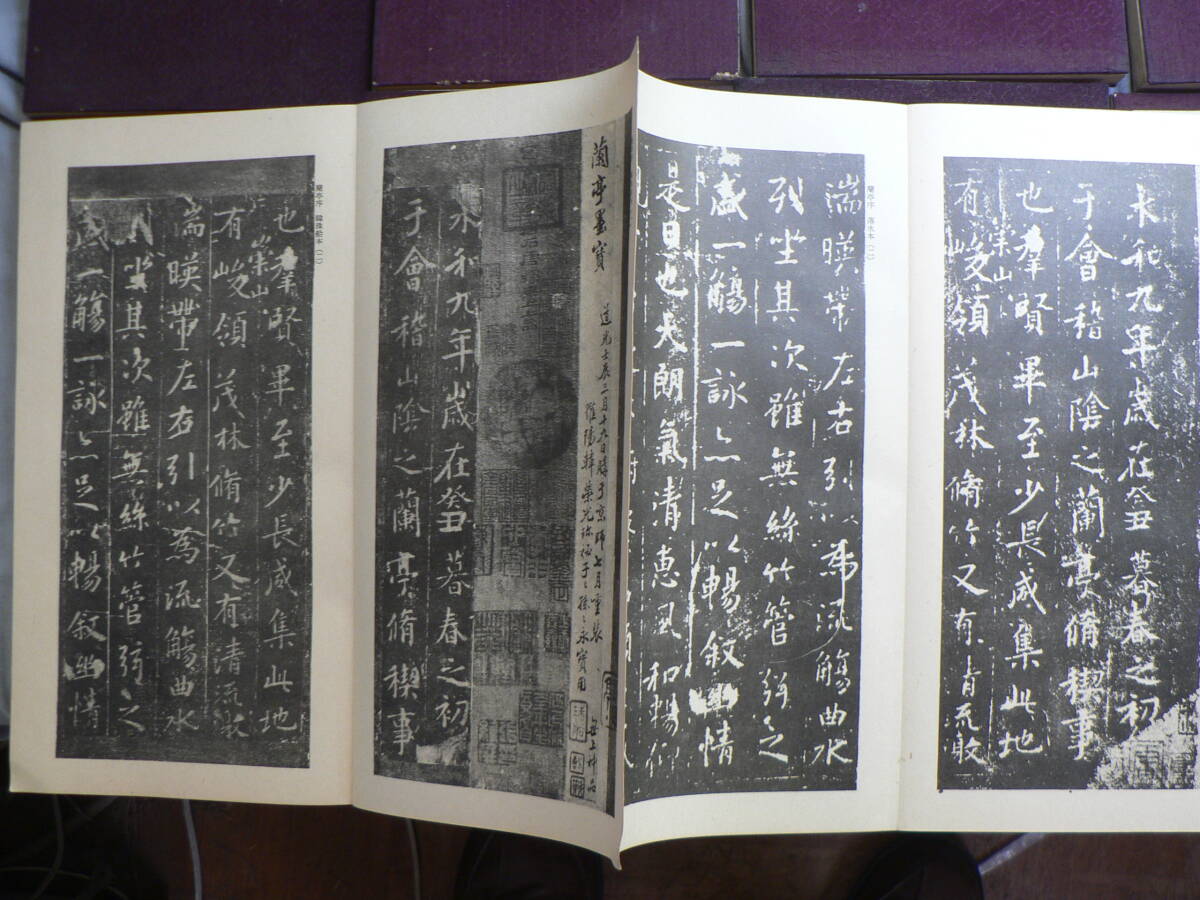 永和九年歲在癸丑暮春之初
于會稽山陰之蘭亭脩稧事
也羣賢畢至少長咸集此地
崇山
有峻領茂林脩竹又有清流激
蘭亭序 落水本(二)
湍暎帶左右引以為流觴曲水
列坐其次雖無絲竹管弦之
盛一觴一詠亦足以暢叙幽情
是日也天朗氣清惠風和暢仰
蘭亭墨寶
道光壬辰三月十九日購于京師七月重裝
永寶用
無上神品
永和九年歲在癸丑暮春之初
于會稽山陰之蘭亭脩稧事
蘭亭序 韓珠船本(二)
也羣賢畢至少長咸集此地
崇山
有峻領茂林脩竹又有清流激
湍暎帶左右引以為流觴曲水
列坐其次雖無絲竹管弦之
盛一觴一詠亦足以暢叙幽情